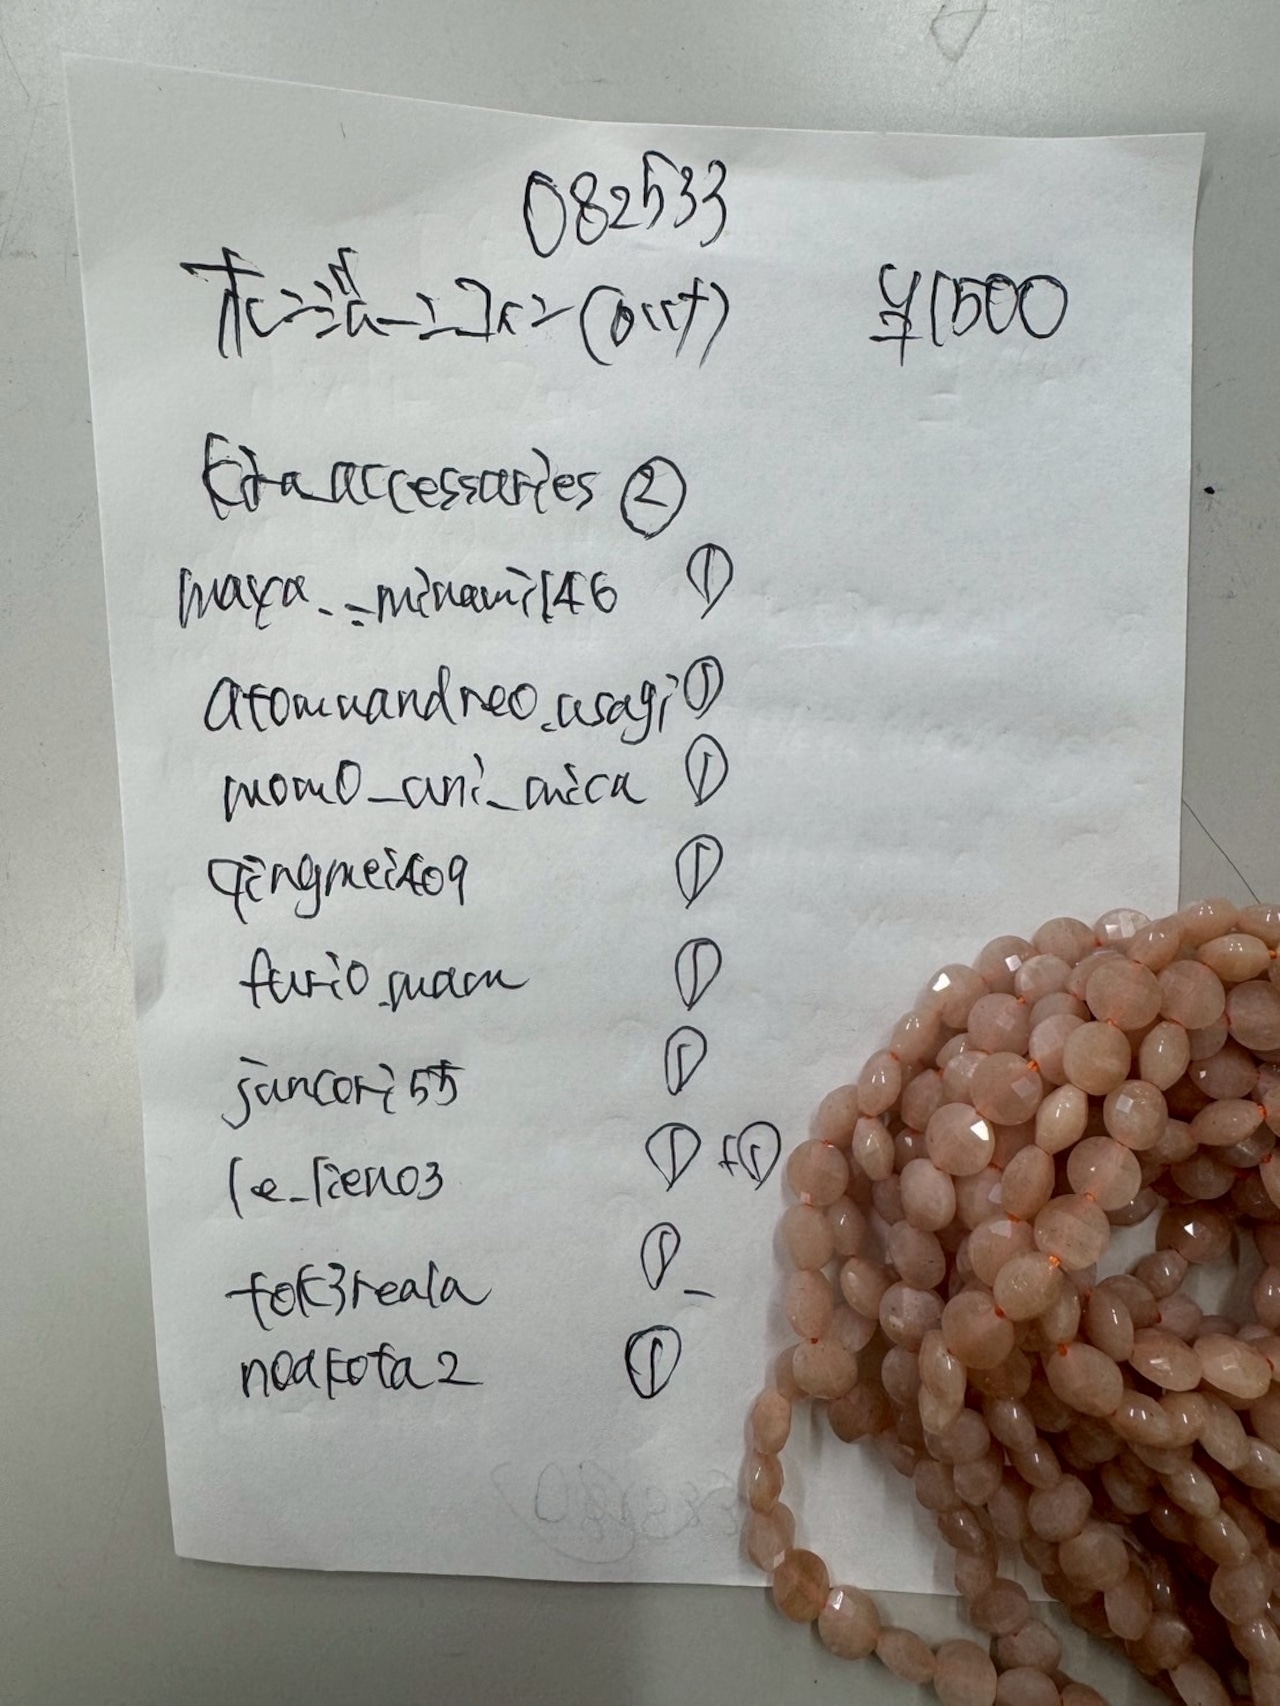 082533
(cut) ¥1500
kita_accessaries ②
maya.__minami146 ①
atomuandreo_usagi ①
momo_ani_mica ①
qingmei409 ①
furio_mam ①
juncori55 ①
le_lien03 ① +①
tok3reala ①
noakota2 ①